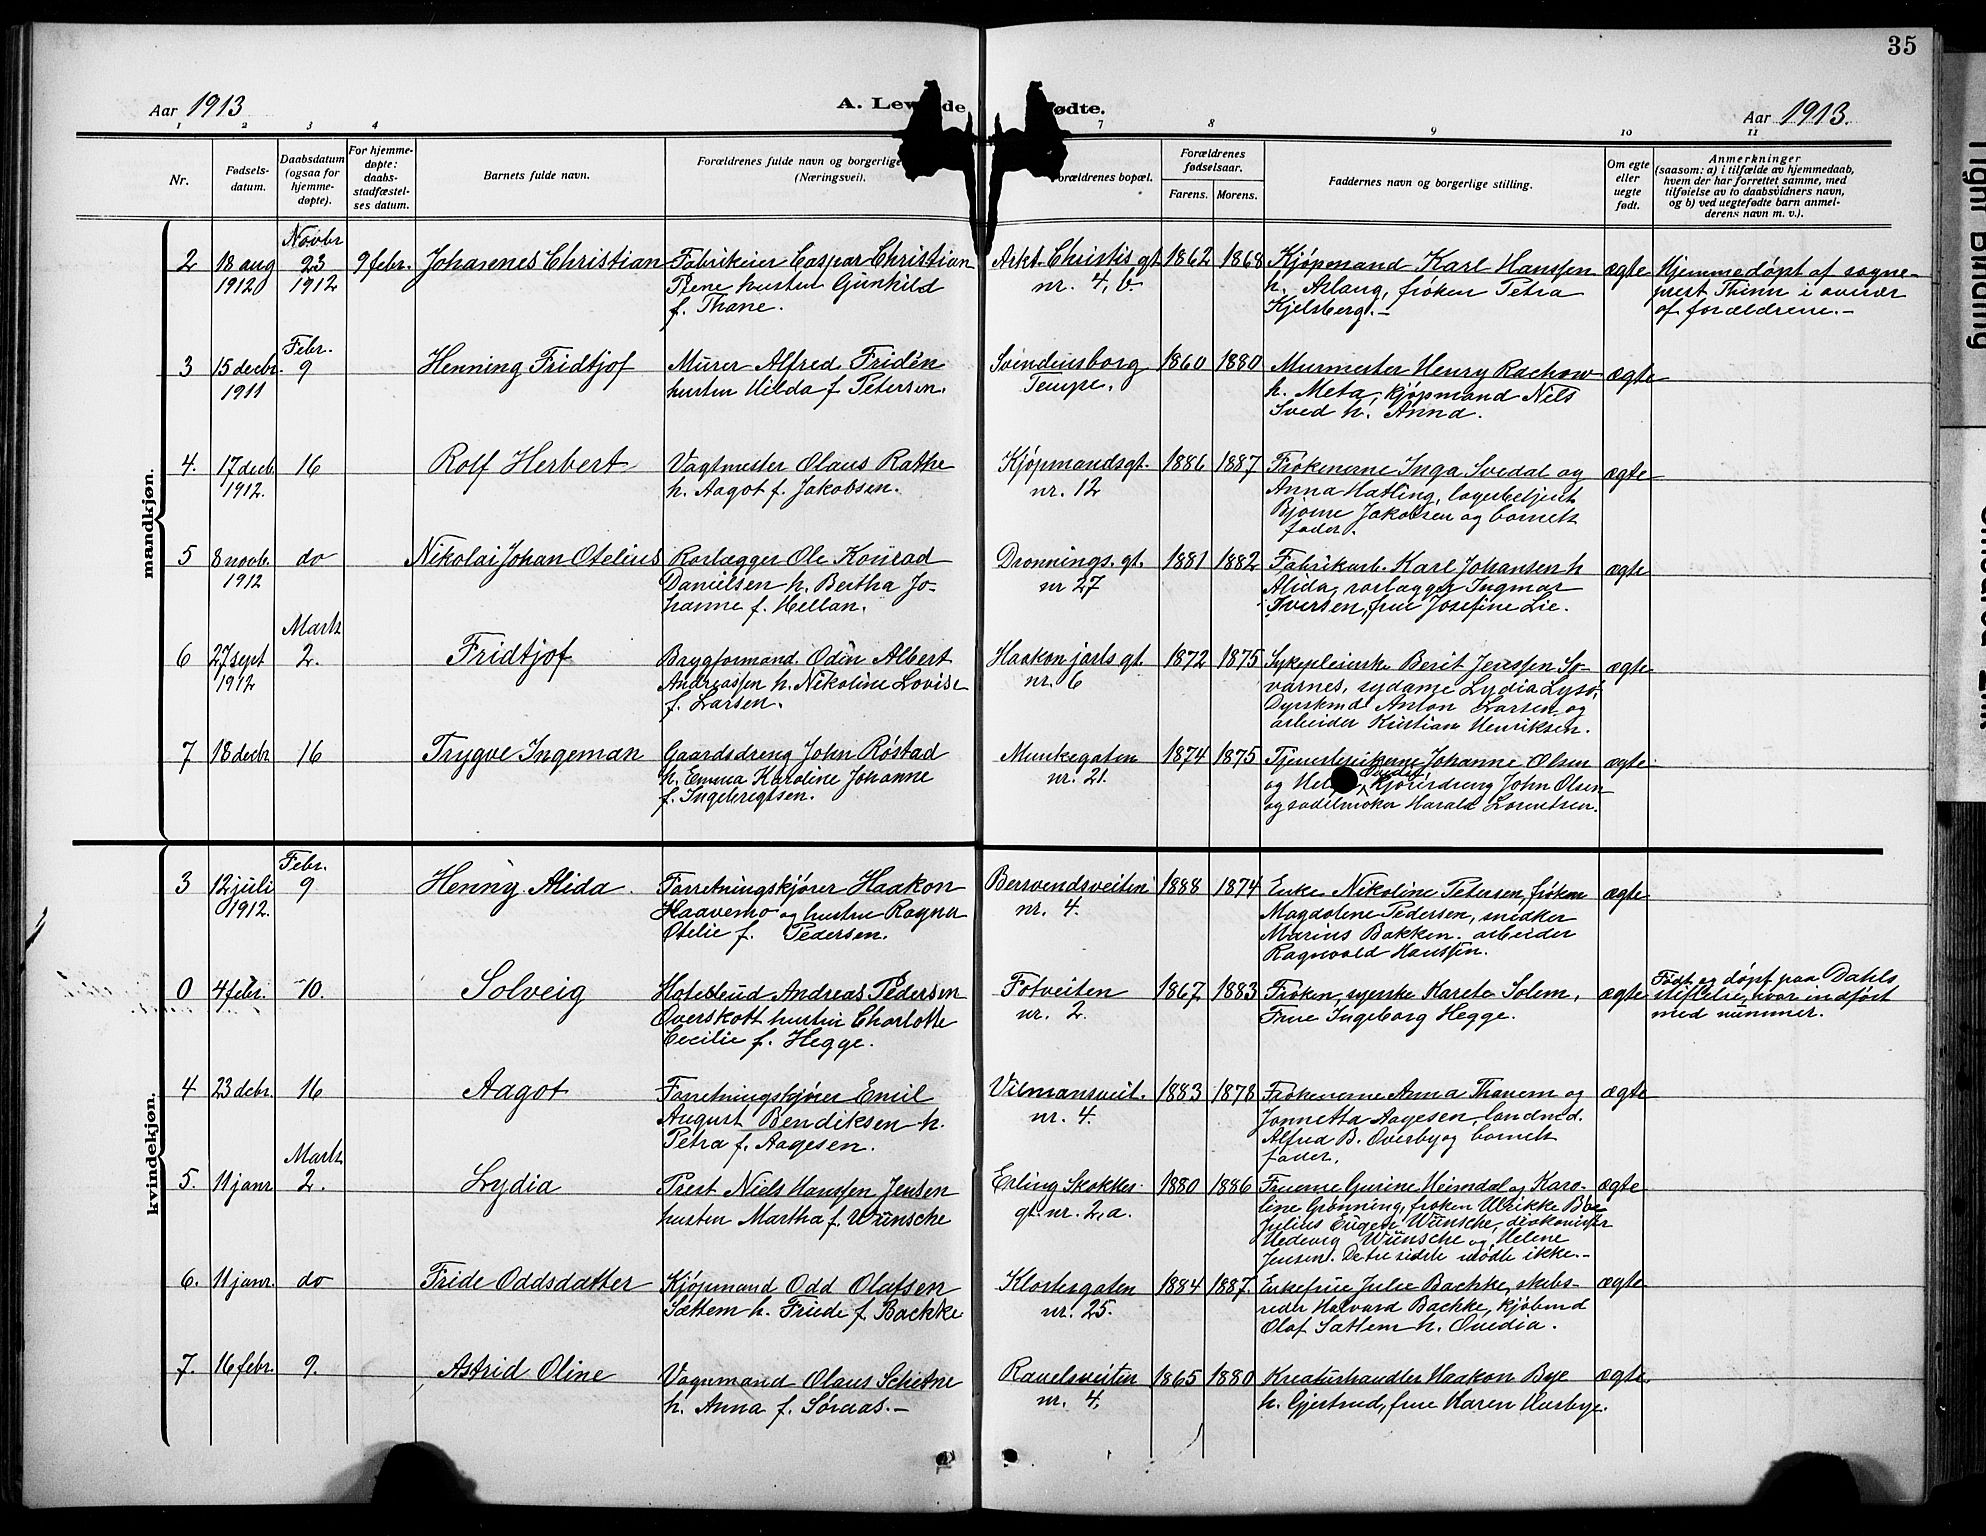 35
Aar 1913
A. Lev de
ødte.
Aar 1913.
1 2 3 4 7 8 9 10 11
Nr.
Fødsels-
datum.
Daabsdatum
(ogsaa for
hjemme-
døpte).
For hjemme-
døpte:
daabs-
stadfæstel-
ses datum.
Barnets fulde navn.
Forældrenes fulde navn og borgerlige
(Næringsvei).
orældrenes bopæl.
Forældrenes
fødselsaar.
Farens. Morens.
Faddernes navn og borgerlige stilling.
Om egte
eller
uegte
født.
Anmerkninger
(saasom: a) i tilfælde av hjemmedaab,
hvem der har forrettet samme, med
tilføielse av to daabsvidners navn,
og b) ved uegtefødte barn anmel-
derens navn m. v.).
mandkjøn.
2 18 aug 1912
Novbr 23 1912
9 febr.
Johannes Christian
Fabrikeier Caspar Christian
Piene hustru Gunhild
f. Thane.
Arkt. Christis gt
nr. 4, b.
1862 1868
Kjøpmand Karl Hanssen
h. Aslaug, frøken Petra
Kjelsberg.-
ægte
Hjemmedøpt af sogne-
prest Thinn i overvær
af forældrene.-
3 15 decbr. 1911
Febr. 9
Henning Fridtjof
Murer Alfred Fridén
hustru Hilda f. Petersen.
Svindensborg
Tempe.
1860 1880
Murmester Henry Rachow
h. Meta, kjøpmand Nils
Sved h. Anna.
ægte
4. 17 decb. 1912.
16
Rolf Herbert
Vagtmester Olaus Rathe
h. Aagot f. Jakobsen.
Kjøpmandsgt.
nr. 12
1886 1887
Frøkenerne Inga Svedal og
Anna Hatling, lagerbetjent
Bjarne Jakobsen og barnets
fader.
ægte
5 8 novb. 1912
do
Nikolai Johan Otelius
Rørlægger Ole Konrad
Danielsen h. Bertha Jo-
hanne f. Hellan.
Dronnings. gt.
nr 27
1881 1882
Fabrikarb. Karl Johansen h
Alida, rørlægger Ingmar
Iversen, frue Josefine Lie.
ægte
6 27 sept 1912
Marts 2.
Fridtjof
Brygformand Odin Albert
Andreassen h. Nikoline Lovise
f. Larsen.
Haakon jarls gt.
nr. 6
1872 1875
Sykepleierske Berit Jenssen So-
varnes, sydame Lydia Lysø,
Dyrskmd. Anton Larsen og
arbeider Kristian Henriksen.
ægte
7 18 decbr
16
Trygve Ingeman
Gaardsdreng John Røstad
h. Emma Karoline Johanne
f. Ingebregtsen.
Munkegaten
nr. 21.
1874 1875
Tjenestepikerne Johanne Olsen
og Hel kjøredreng John Olsen
og sadelmaker Harald Lorentsen.
ægte.
kvindekjøn.
3 12 juli 1912.
Febr. 9
Henny Alida.
Forretningskjører Haakon
Haavemo og hustru Ragna
Otelie f. Pedersen.
Bersvendsveiten
nr. 4.
1888 1874
Enke Nikoline Petersen, frøken
Magdalene Pedersen, snedker
Marius Bakken. arbeider
Ragnvald Hanssen.
ægte
0 4 febr.
10.
Solveig
Hotelbud Andreas Pedersen
Overskott hustru Charlotte
Cecilie f. Hegge.
Fotveiten
nr. 2.
1867 1883
Frøken, syerske Karete Solem,
Frue Ingeborg Hegge.
ægte
Født og døpt paa Dahls
stiftelse, hvor indført
med nummer.
4 23 dcbr.
16
Aagot
Forretningskjører Emil
August Bendiksen h.
Petra f. Aagesen.
Vilmansveit.
nr. 4.
1883 1878
Frøkenerne Anna Thanem og
Jonnetta Aagesen, landmd.
Alfred B. Overby og barnets
fader.
ægte
5. 11 janr
Marts 2.
Lydia
Prest Niels Hanssen Jensen
hustru Martha f. Wünsche
Erling Skakkes
gt. nr. 2, a.
1880 1886
Fruerne Gurine Heimdal og Karo-
line Grønning, frøken Ulrikke Bøe
Julius Eugen Wünsche, diakonisser
Hedevig Wünsche og Helene
Jensen. De tre sidste mødte ikke.-
ægte
6. 11 janr.
do
Fride Oddsdatter
Kjøpmand Odd Olafsen
Sættem h. Friede f. Bachke
Klostergaten
nr. 25.
1884 1887.
Enkefrue Julie Bachke, skibs-
reder Halvard Bachke, kjøbmd
Olaf Sættem h. Ovedia.
ægte
7. 16 febr.
9.
Astrid Oline
Vognmand Olaus Schetne
h. Anna f. Søraas.-
Ravelsveiten
nr. 4,
1865 1880
Kreaturhandler Haakon Bye
h. Gjertrud, frue Karen Husby.
ægte.